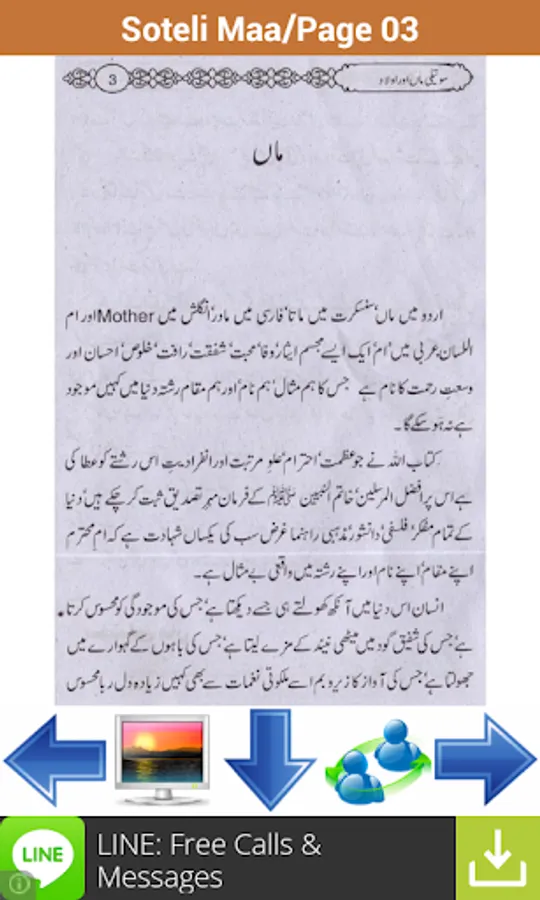 Soteli Maa/Page 03
3
سوتیلی ماں اور اولاد
ماں
اردو میں ماں‘ سنسکرت میں ماتا‘ فارسی میں مادر‘ انگلش میں Mother اور ام
اللسان عربی میں ’ام‘ ایک ایسے مجسم ایثار‘ وفا‘ محبت‘ شفقت‘ رافت‘ خلوص‘ احسان اور
وسعتِ رحمت کا نام ہے جس کا ہم مثال‘ ہم نام اور ہم مقام رشتہ دنیا میں کہیں موجود
ہے نہ ہو سکے گا۔
کتاب اللہ نے جو عظمت‘ احترام‘ علوِ مرتبت اور انفرادیت اس رشتے کو عطا کی
ہے اس پر افضل المرسلین‘ خاتم النبیین ﷺ کے فرمان مہرِ تصدیق ثبت کر چکے ہیں‘ دنیا
کے تمام مفکر‘ فلسفی‘ دانشور‘ مذہبی راہنما غرض سب کی یکساں شہادت ہے کہ ام محترم
اپنے مقام‘ اپنے نام اور اپنے رشتہ میں واقعی بے مثال ہے۔
انسان اس دنیا میں آنکھ کھولتے ہی جسے دیکھتا ہے‘ جس کی موجودگی کو محسوس کرتا
ہے‘ جس کی شفیق گود میں میٹھی نیند کے مزے لیتا ہے‘ جس کی باہوں کے گہوارے میں
جھولتا ہے‘ جس کی آواز کا زیر و بم اسے ملکوتی نغمات سے بھی کہیں زیادہ دل ربا محسوس
LINE
LINE: Free Calls &
Messages